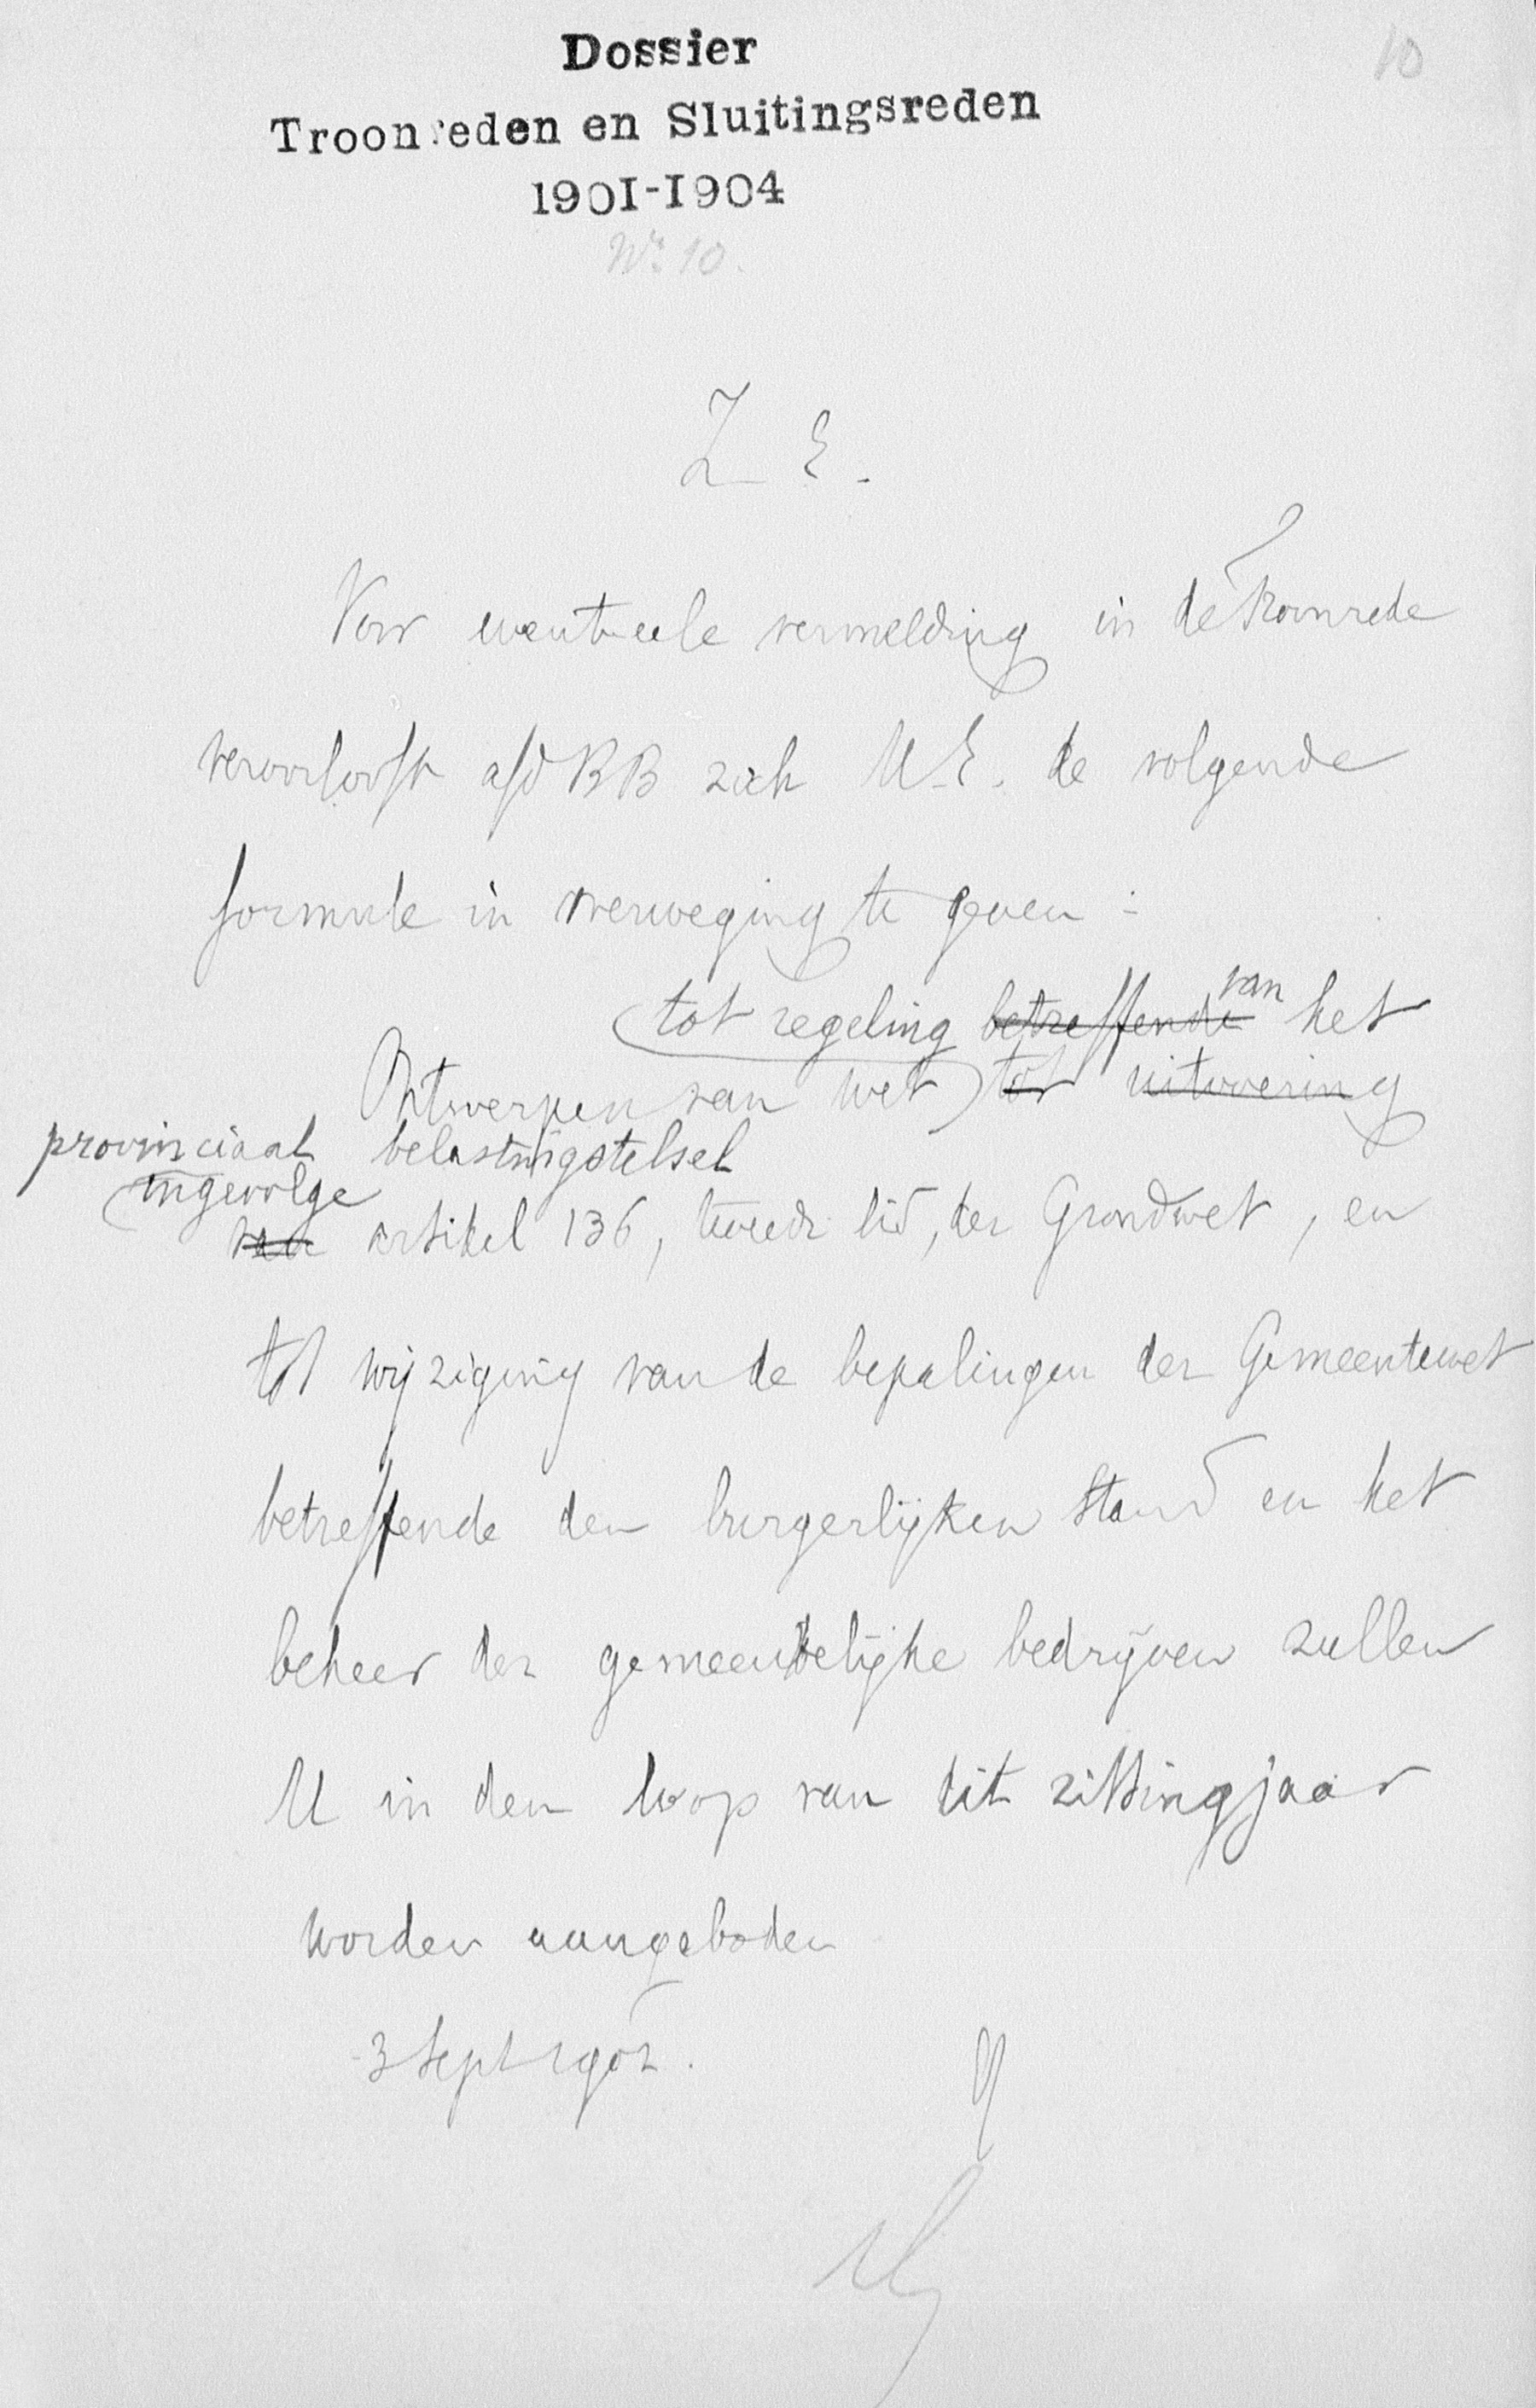 10
Dossier
Troonreden en Sluitingsreden
1901-1904
Nr. 10.
Z E.
Voor eventueele vermelding in de Troonrede
veroorlooft afd BB zich U.E. de volgende
formule in overweging te geven :
tot regeling betreffende van het
Ontwerpen van wet tot uitvoering
provinciaal belastingstelsel
ingevolge
van artikel 136, tweede lid, der Grondwet, en
tot wijziging van de bepalingen der Gemeentewet
betreffende den burgerlijken stand en het
beheer der gemeentelijke bedrijven zullen
U in den loop van dit zittingjaar
worden aangeboden
3 Sept 1902.